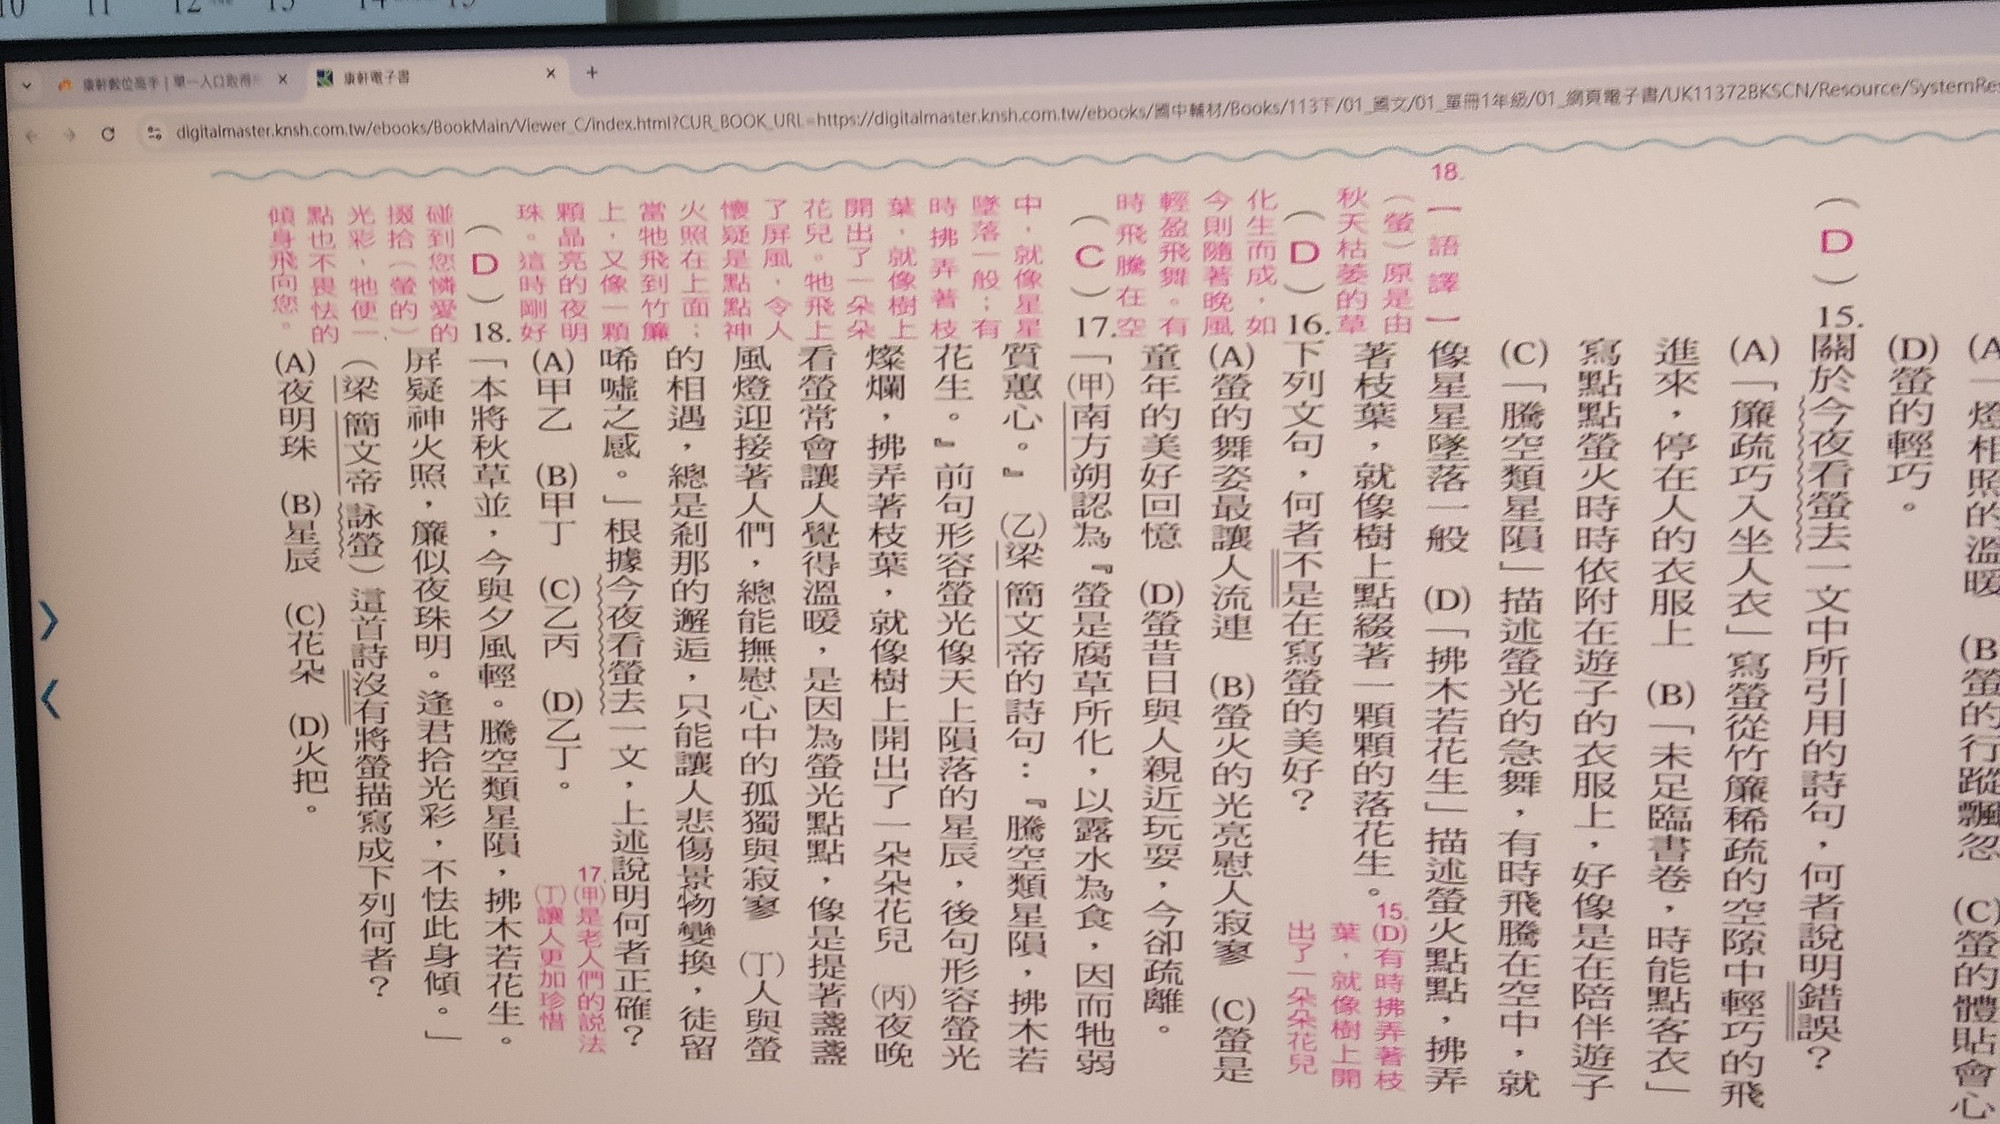 10 11 12 13 14 15
康軒數位高手 | 單一入口取得
康軒電子書
digitalmaster.knsh.com.tw/ebooks/BookMain/Viewer_C/index.html?CUR_BOOK_URL=https://digitalmaster.knsh.com.tw/ebooks/國中輔材/Books/113下/01_國文/01_單冊1年級/01_網頁電子書/UK11372BKSCN/Resource/SystemRes
(A)一燈相照的溫暖 (B)螢的行蹤飄忽 (C)螢的體貼會心
(D)螢的輕巧。
(D)15.關於今夜看螢去一文中所引用的詩句,何者說明錯誤?
(A)「簾疏巧入坐人衣」寫螢從竹簾稀疏的空隙中輕巧的飛
進來,停在人的衣服上 (B)「未足臨書卷,時能點客衣」
寫點點螢火時時依附在遊子的衣服上,好像是在陪伴遊子
(C)「騰空類星隕」描述螢光的急舞,有時飛騰在空中,就
像星星墜落一般 (D)「拂木若花生」描述螢火點點,拂弄
著枝葉,就像樹上點綴著一顆顆的落花生。
15.(D)有時拂弄著枝
葉,就像樹上開
出了一朵朵花兒
(D)16.下列文句,何者不是在寫螢的美好?
(A)螢的舞姿最讓人流連 (B)螢火的光亮慰人寂寥 (C)螢是
童年的美好回憶 (D)螢昔日與人親近玩耍,今卻疏離。
(C)17.「(甲)南方朔認為『螢是腐草所化,以露水為食,因而牠弱
質蕙心。』 (乙)梁 簡文帝的詩句:『騰空類星隕,拂木若
花生。』前句形容螢光像天上隕落的星辰,後句形容螢光
燦爛,拂弄著枝葉,就像樹上開出了一朵朵花兒 (丙)夜晚
看螢常會讓人覺得溫暖,是因為螢光點點,像是提著盞盞
風燈迎接著人們,總能撫慰心中的孤獨與寂寥 (丁)人與螢
的相遇,總是剎那的邂逅,只能讓人悲傷景物變換,徒留
唏噓之感。」根據今夜看螢去一文,上述說明何者正確?
(A)甲乙 (B)甲丁 (C)乙丙 (D)乙丁。
17.(甲)是老人們的說法
(丁)讓人更加珍惜
(D)18.「本將秋草並,今與夕風輕。騰空類星隕,拂木若花生。
屏疑神火照,簾似夜珠明。逢君拾光彩,不怯此身傾。」
(梁 簡文帝 詠螢)這首詩沒有將螢描寫成下列何者?
(A)夜明珠 (B)星辰 (C)花朵 (D)火把。
18.【語譯】
(螢)原是由
秋天枯萎的草
化生而成,如
今則隨著晚風
輕盈飛舞。有
時飛騰在空
中,就像星星
墜落一般;有
時拂弄著枝
葉,就像樹上
開出了一朵朵
花兒。牠飛上
了屏風,令人
懷疑是點點神
火照在上面;
當牠飛到竹簾
上,又像一顆
顆晶亮的夜明
珠。這時剛好
碰到您憐愛的
掇拾(螢的)
光彩,牠便一
點也不畏怯的
傾身飛向您。